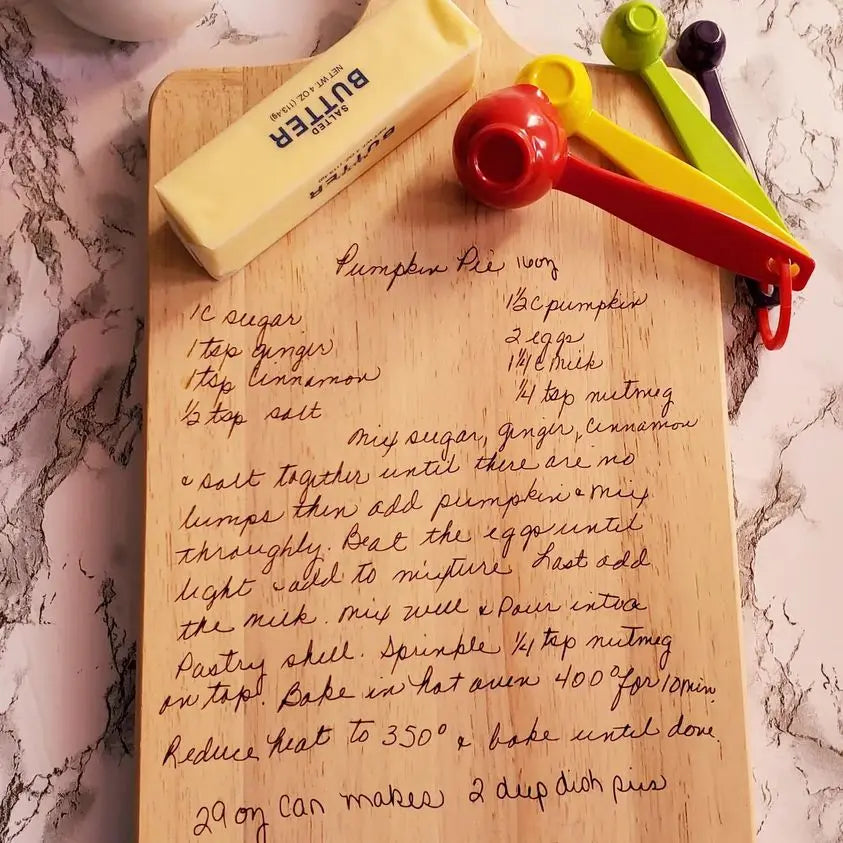 SALTED
BUTTER
NET WT. 4 OZ. (113.4g)
BUTTER
Pumpkin Pie 16oz
1c sugar
1 tsp ginger
1 tsp Cinnamon
½ tsp salt
1½ c pumpkin
2 eggs
1¼ c milk
¼ tsp nutmeg
Mix sugar, ginger, Cinnamon
& salt together until there are no
lumps then add pumpkin & mix
throughly. Beat the eggs until
light & add to mixture Last add
the milk. Mix well & Pour into a
Pastry shell. Sprinkle ¼ tsp nutmeg
on top. Bake in hot oven 400° for 10 min.
Reduce heat to 350° & bake until done.
29 oz can makes 2 deep dish pies